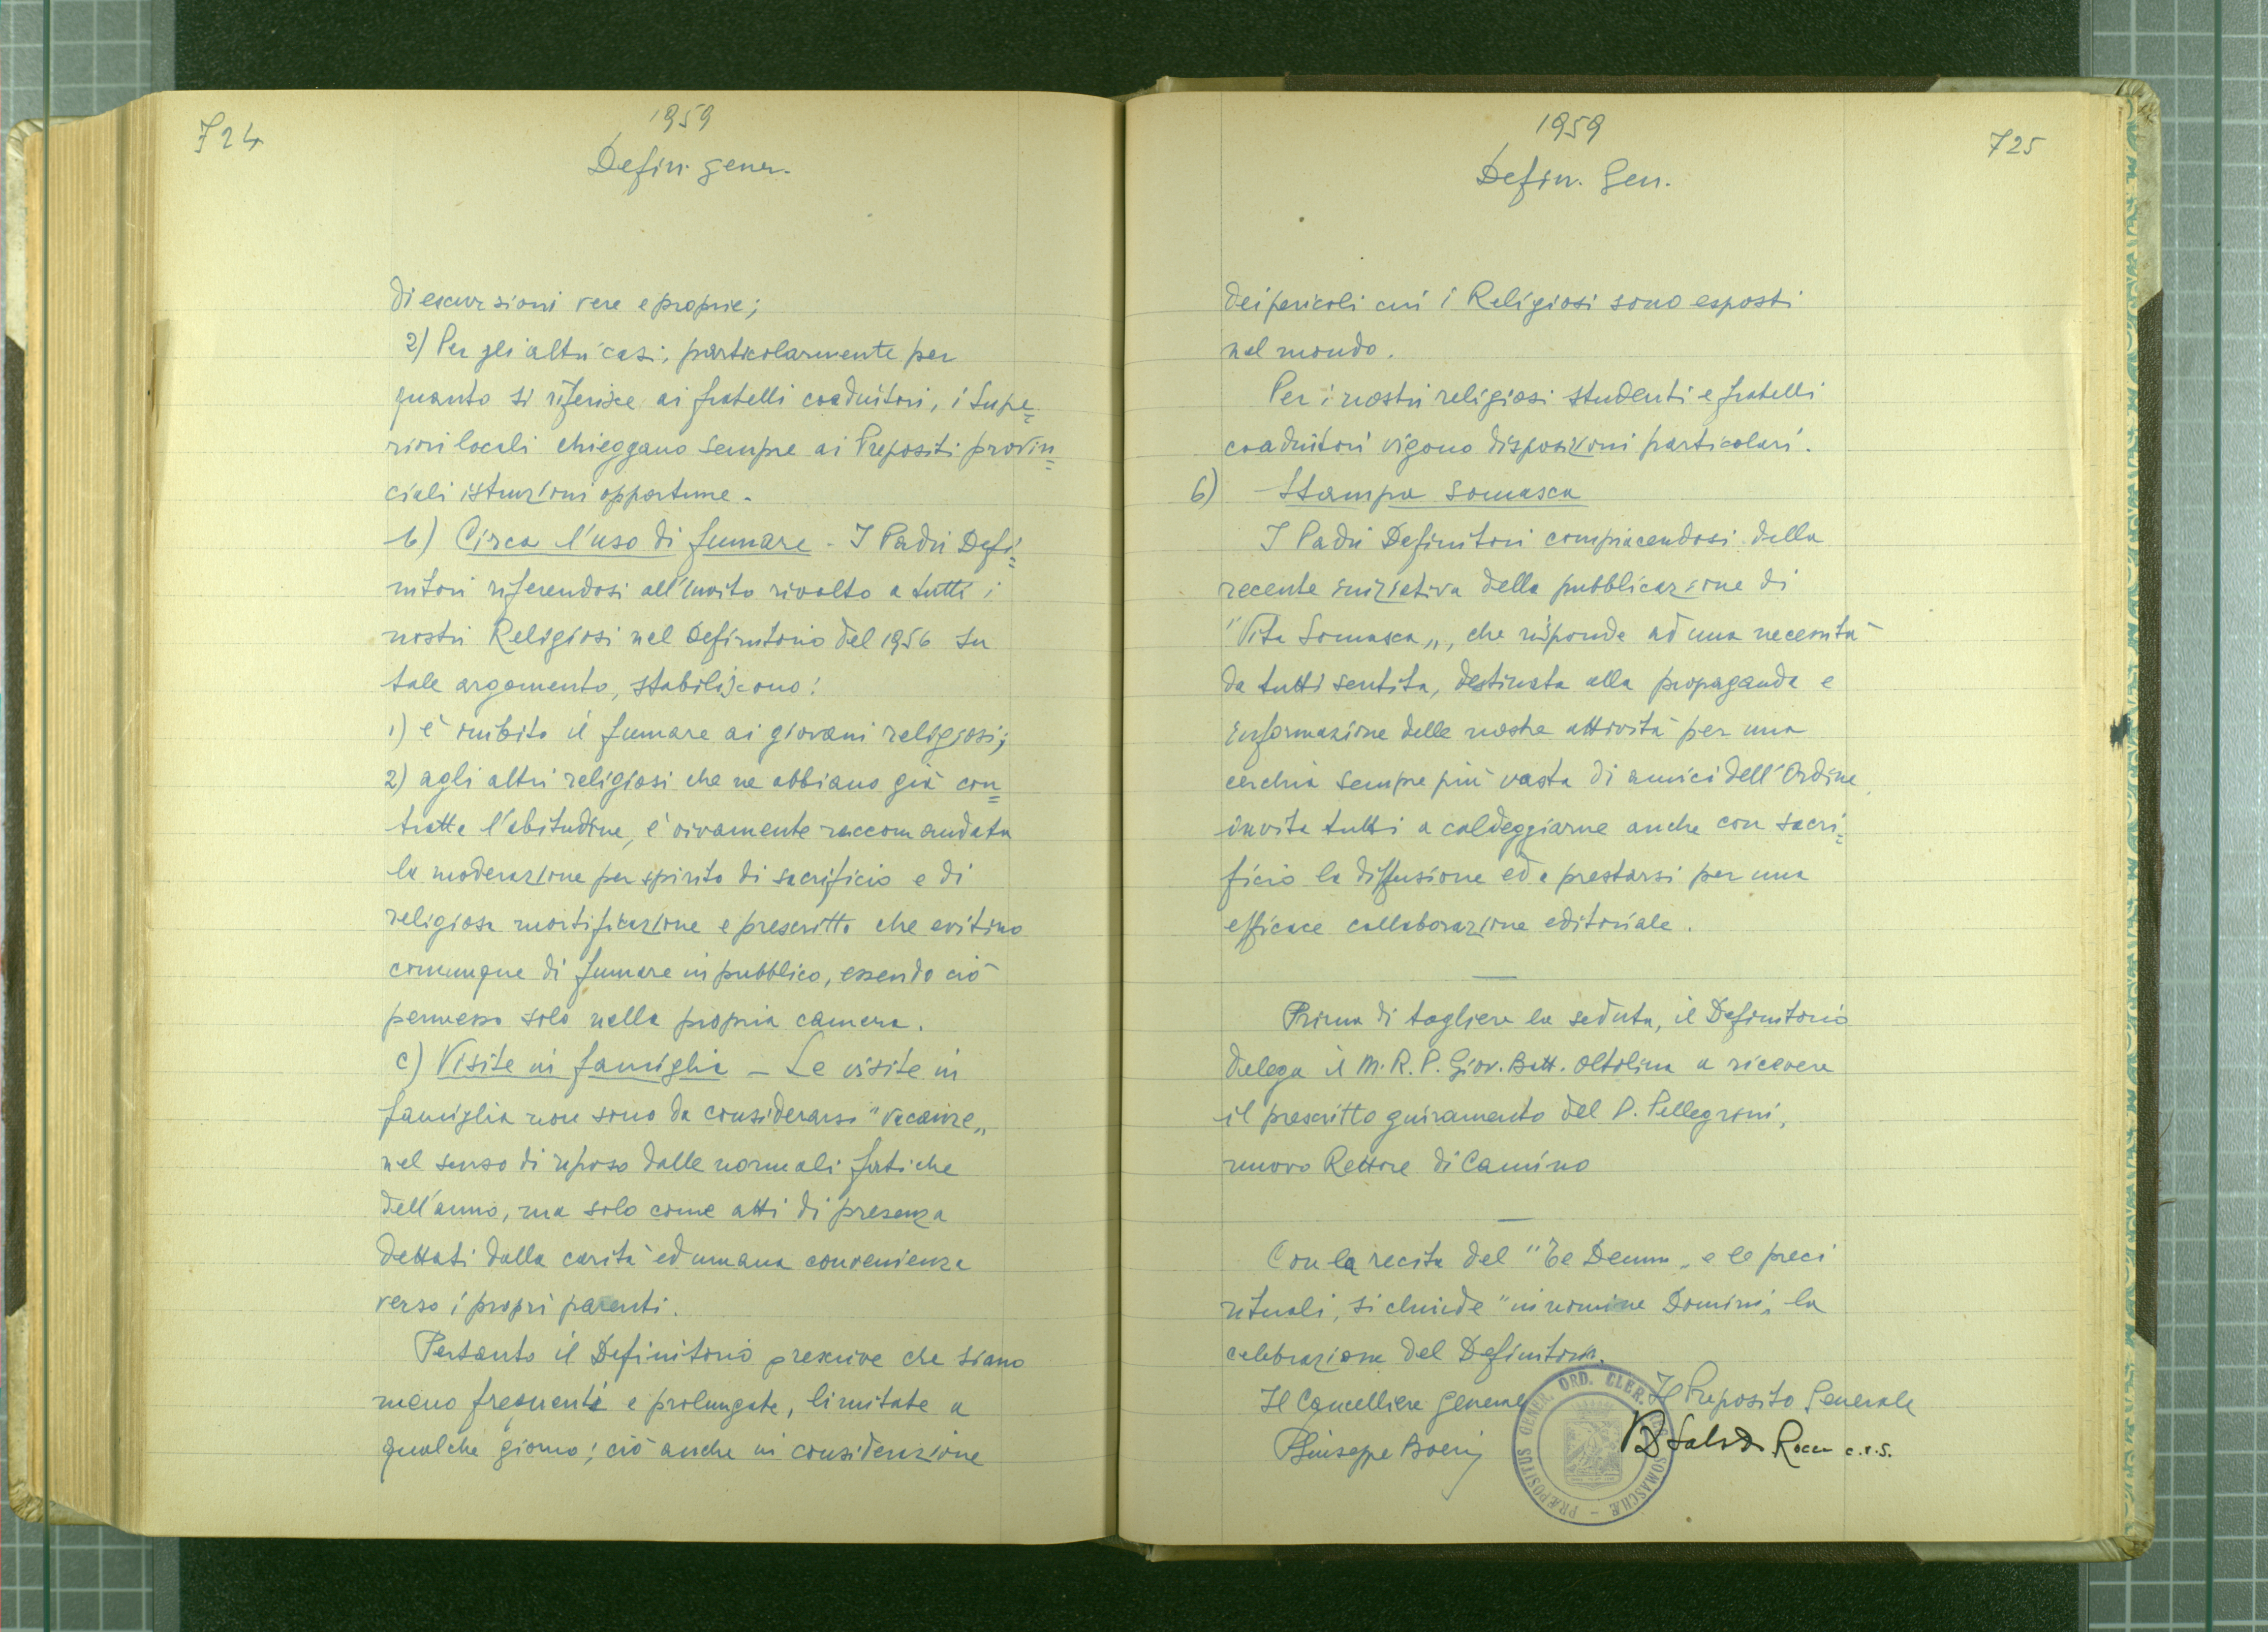 724
1959
Defin. gener.
di escursioni vere e proprie;
2) Per gli altri casi, particolarmente per
quanto si riferisce ai fratelli coadiutori, i Supe=
riori locali chieggano sempre ai Prepositi provin=
ciali istruzioni opportune.
b) Circa l'uso di fumare - I Padri Defi=
nitori riferendosi all'invito rivolto a tutti i
nostri Religiosi nel Definitorio del 1956 su
tale argomento, stabiliscono:
1) è inibito il fumare ai giovani religiosi;
2) agli altri religiosi che ne abbiano già con=
tratta l'abitudine, è vivamente raccomandata
la moderazione per spirito di sacrificio e di
religiosa mortificazione e prescritto che evitino
comunque di fumare in pubblico, essendo ciò
permesso solo nella propria camera.
c) Visite in famiglia - Le visite in
famiglia non sono da considerarsi "vacanze„
nel senso di riposo dalle normali fatiche
dell'anno, ma solo come atti di presenza
dettati dalla carità ed umana convenienza
verso i propri parenti.
Pertanto il Definitorio prescrive che siano
meno frequenti e prolungate, limitate a
qualche giorno; ciò anche in considerazione
1959
Defin. Gen.
725
dei pericoli cui i Religiosi sono esposti
nel mondo.
Per i nostri religiosi studenti e fratelli
coadiutori vigono disposizioni particolari.
6) Stampa somasca
I Padri Definitori compiacendosi della
recente iniziativa della pubblicazione di
"Vita Somasca„, che risponde ad una necessità
da tutti sentita, destinata alla propaganda e
informazione delle nostre attività per una
cerchia sempre più vasta di amici dell'Ordine,
invita tutti a caldeggiarne anche con sacri=
ficio la diffusione ed a prestarsi per una
efficace collaborazione editoriale.
Prima di togliere la seduta, il Definitorio
delega il M. R. P. Giov. Batt. Oltolina a ricevere
il prescritto giuramento del P. Pellegrini,
nuovo Rettore di Camino
Con la recita del "Te Deum„ e le preci
rituali, si chiude "in nomine Domini„ la
celebrazione del Definitorio.
Il Cancelliere generale
Il Preposito Generale
P Giuseppe Boeris
Rocco c.r.s.
PRÆPOSITUS GENER. ORD. CLER. SOMASCHÆ